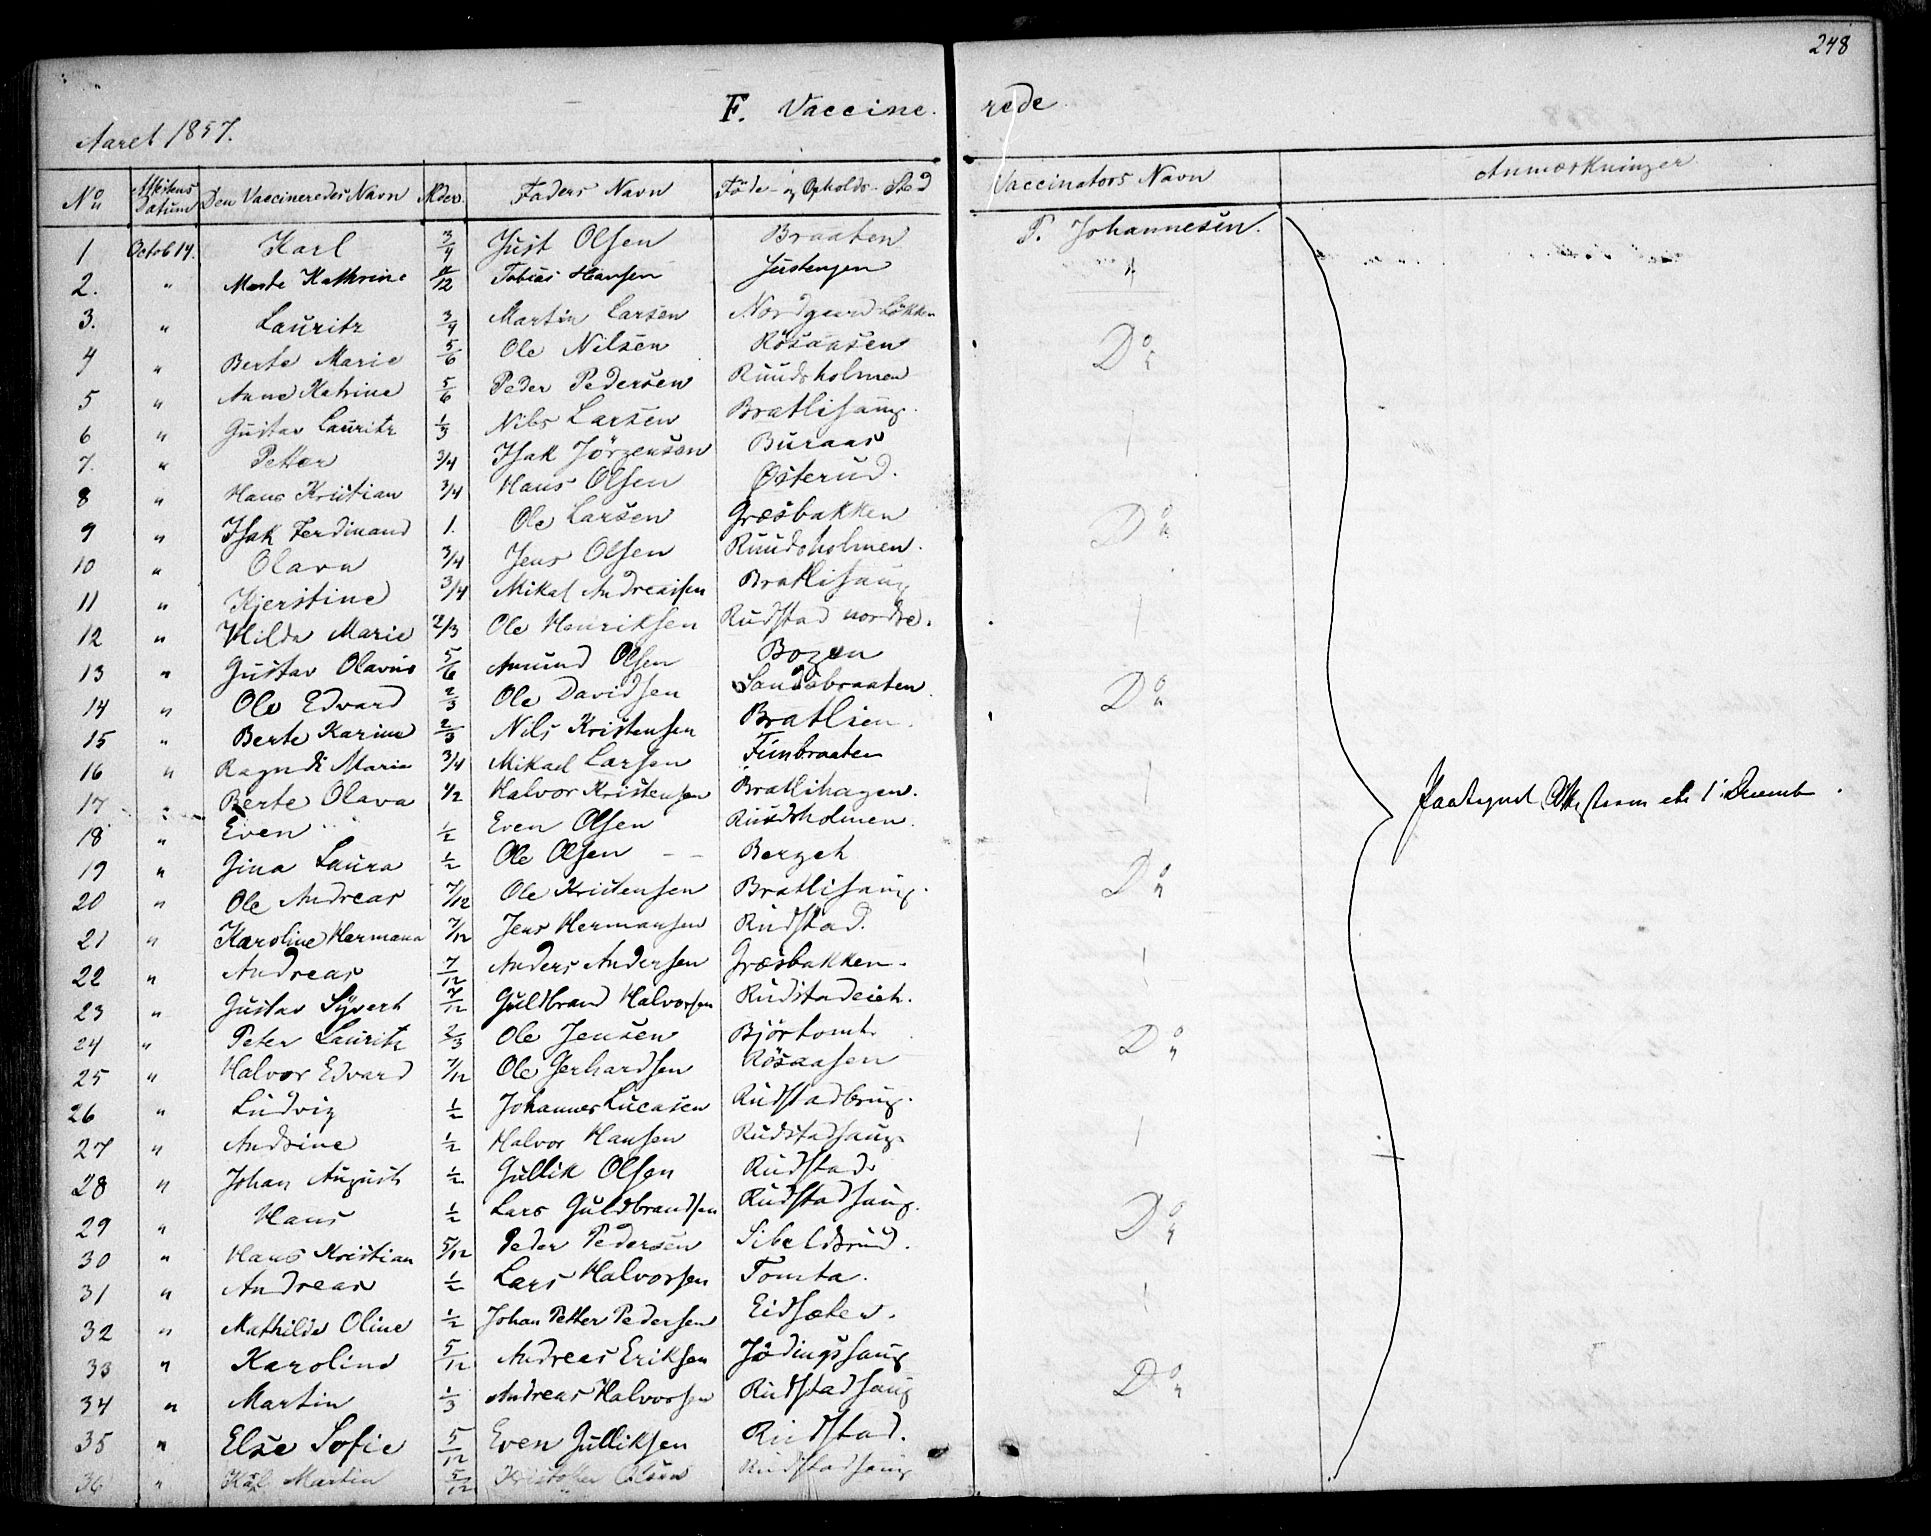 248
F. Vaccine- rede
Aaret 1857.
No Attestens Datum Den Vaccineredes Navn Alder. Faders Navn Føde- og Opholds-Sted Vaccinators Navn Anmærkninger
1 Octob 14. Karl 3/4 Just Olsen Braaten P. Johannesen.
2. " Marte Kathrine /12 Tobias Hansen Justengen "
3. " Lauritz 3/4 Martin Larsen Nordgaard Løkken
4 " Berte Marie 5/6 Ole Nilsen Rösaasen Do
5 " Anne Katrine 5/6 Peder Pedersen Ruudsholmen
6 " Gustav Lauritz 1/3 Nils Larsen Bratlihaug.
7. " Petter 3/4 Isak Jörgensen Buraas
8 " Hans Kristian 3/4 Hans Olsen Østerud.
9 " Isak Ferdinand 1. Ole Larsen Græsbakken Do
10 " Olava 3/4 Jens Olsen Ruudsholmen.
11 " Kjerstine 3/4 Mikal Andreassen Bratlihaug
12 " Hilda Marie 2/3 Ole Henriksen Rudstad nordre.
13 " Gustav Olavus 5/6 Amund Olsen Bogen
14 " Ole Edvard 2/3 Ole Davidsen Sandsbraaten. Do
15 " Berte Karine 2/3 Nils Kristensen Bratlien.
16 " Ragndi Marie 3/4 Mikael Larsen Finbraaten
17 " Berte Olava 1/2 Halvor Kristensen Bratlihagen. 1 Decemb.
18 " Even 1/2 Even Olsen Rudsholmen.
19 " Gina Laura 1/2 Ole Olsen Berget
20 " Ole Andreas 7/12 Ole Kristensen Bratlihaug. Do
21 " Karoline Hermana 7/12 Jens Hermansen Rudstad.
22 " Andreas 7/12 Anders Andersen Græsbakken.
23 " Gustav Syvert 7/12 Guldbrand Halvorsen Rudstadeiet.
24 " Peter Lauritz 2/3 Ole Jensen Björtomt. Do
25 " Halvor Edvard 7/12 Ole Gerhardsen Rösaasen
26 " Ludvig 1/2 Johannes Lucasen Rudstadbrug.
27 " Andrine 1/2 Halvor Hansen Rudstadhaug.
28 " Johan August 1/2 Gullik Olsen Rudstad
29 " Hans 1/2 Lars Guldbrandsen Rudstadhaug. Do
30 " Hans Kristian 5/12 Peder Pedersen Sibeldsrud.
31 " Andreas 1/2 Lars Halvorsen Tomta.
32 " Mathilde Oline 1/2 Johan Petter Pedersen Eidsæter.
33 " Karoline 5/12 Andreas Eriksen Jödingshaug
34 " Martin 1/3 Andreas Halvorsen Rudstadhaug Do
35 " Else Sofie 5/12 Even Gulliksen Rudstad.
36 " Karl Martin 5/12 Kristoffer Olsen Rudstadhaug